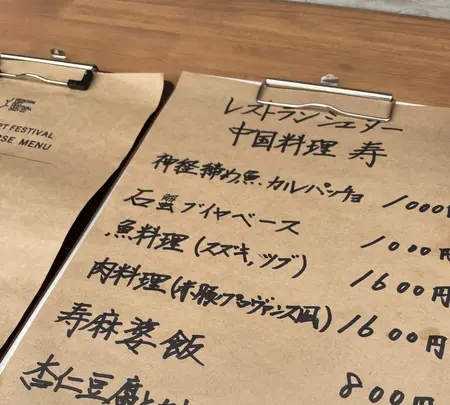 RT FESTIVAL
RSE MENU
レストランシェター
中国料理 寿
神経締め魚カルパッチョ 1000円
石蟹ブイヤベース 1000円
魚料理(スズキ,ツブ) 1600円
肉料理(赤豚プロヴァンス風) 1600円
寿麻婆飯 800円
杏仁豆腐